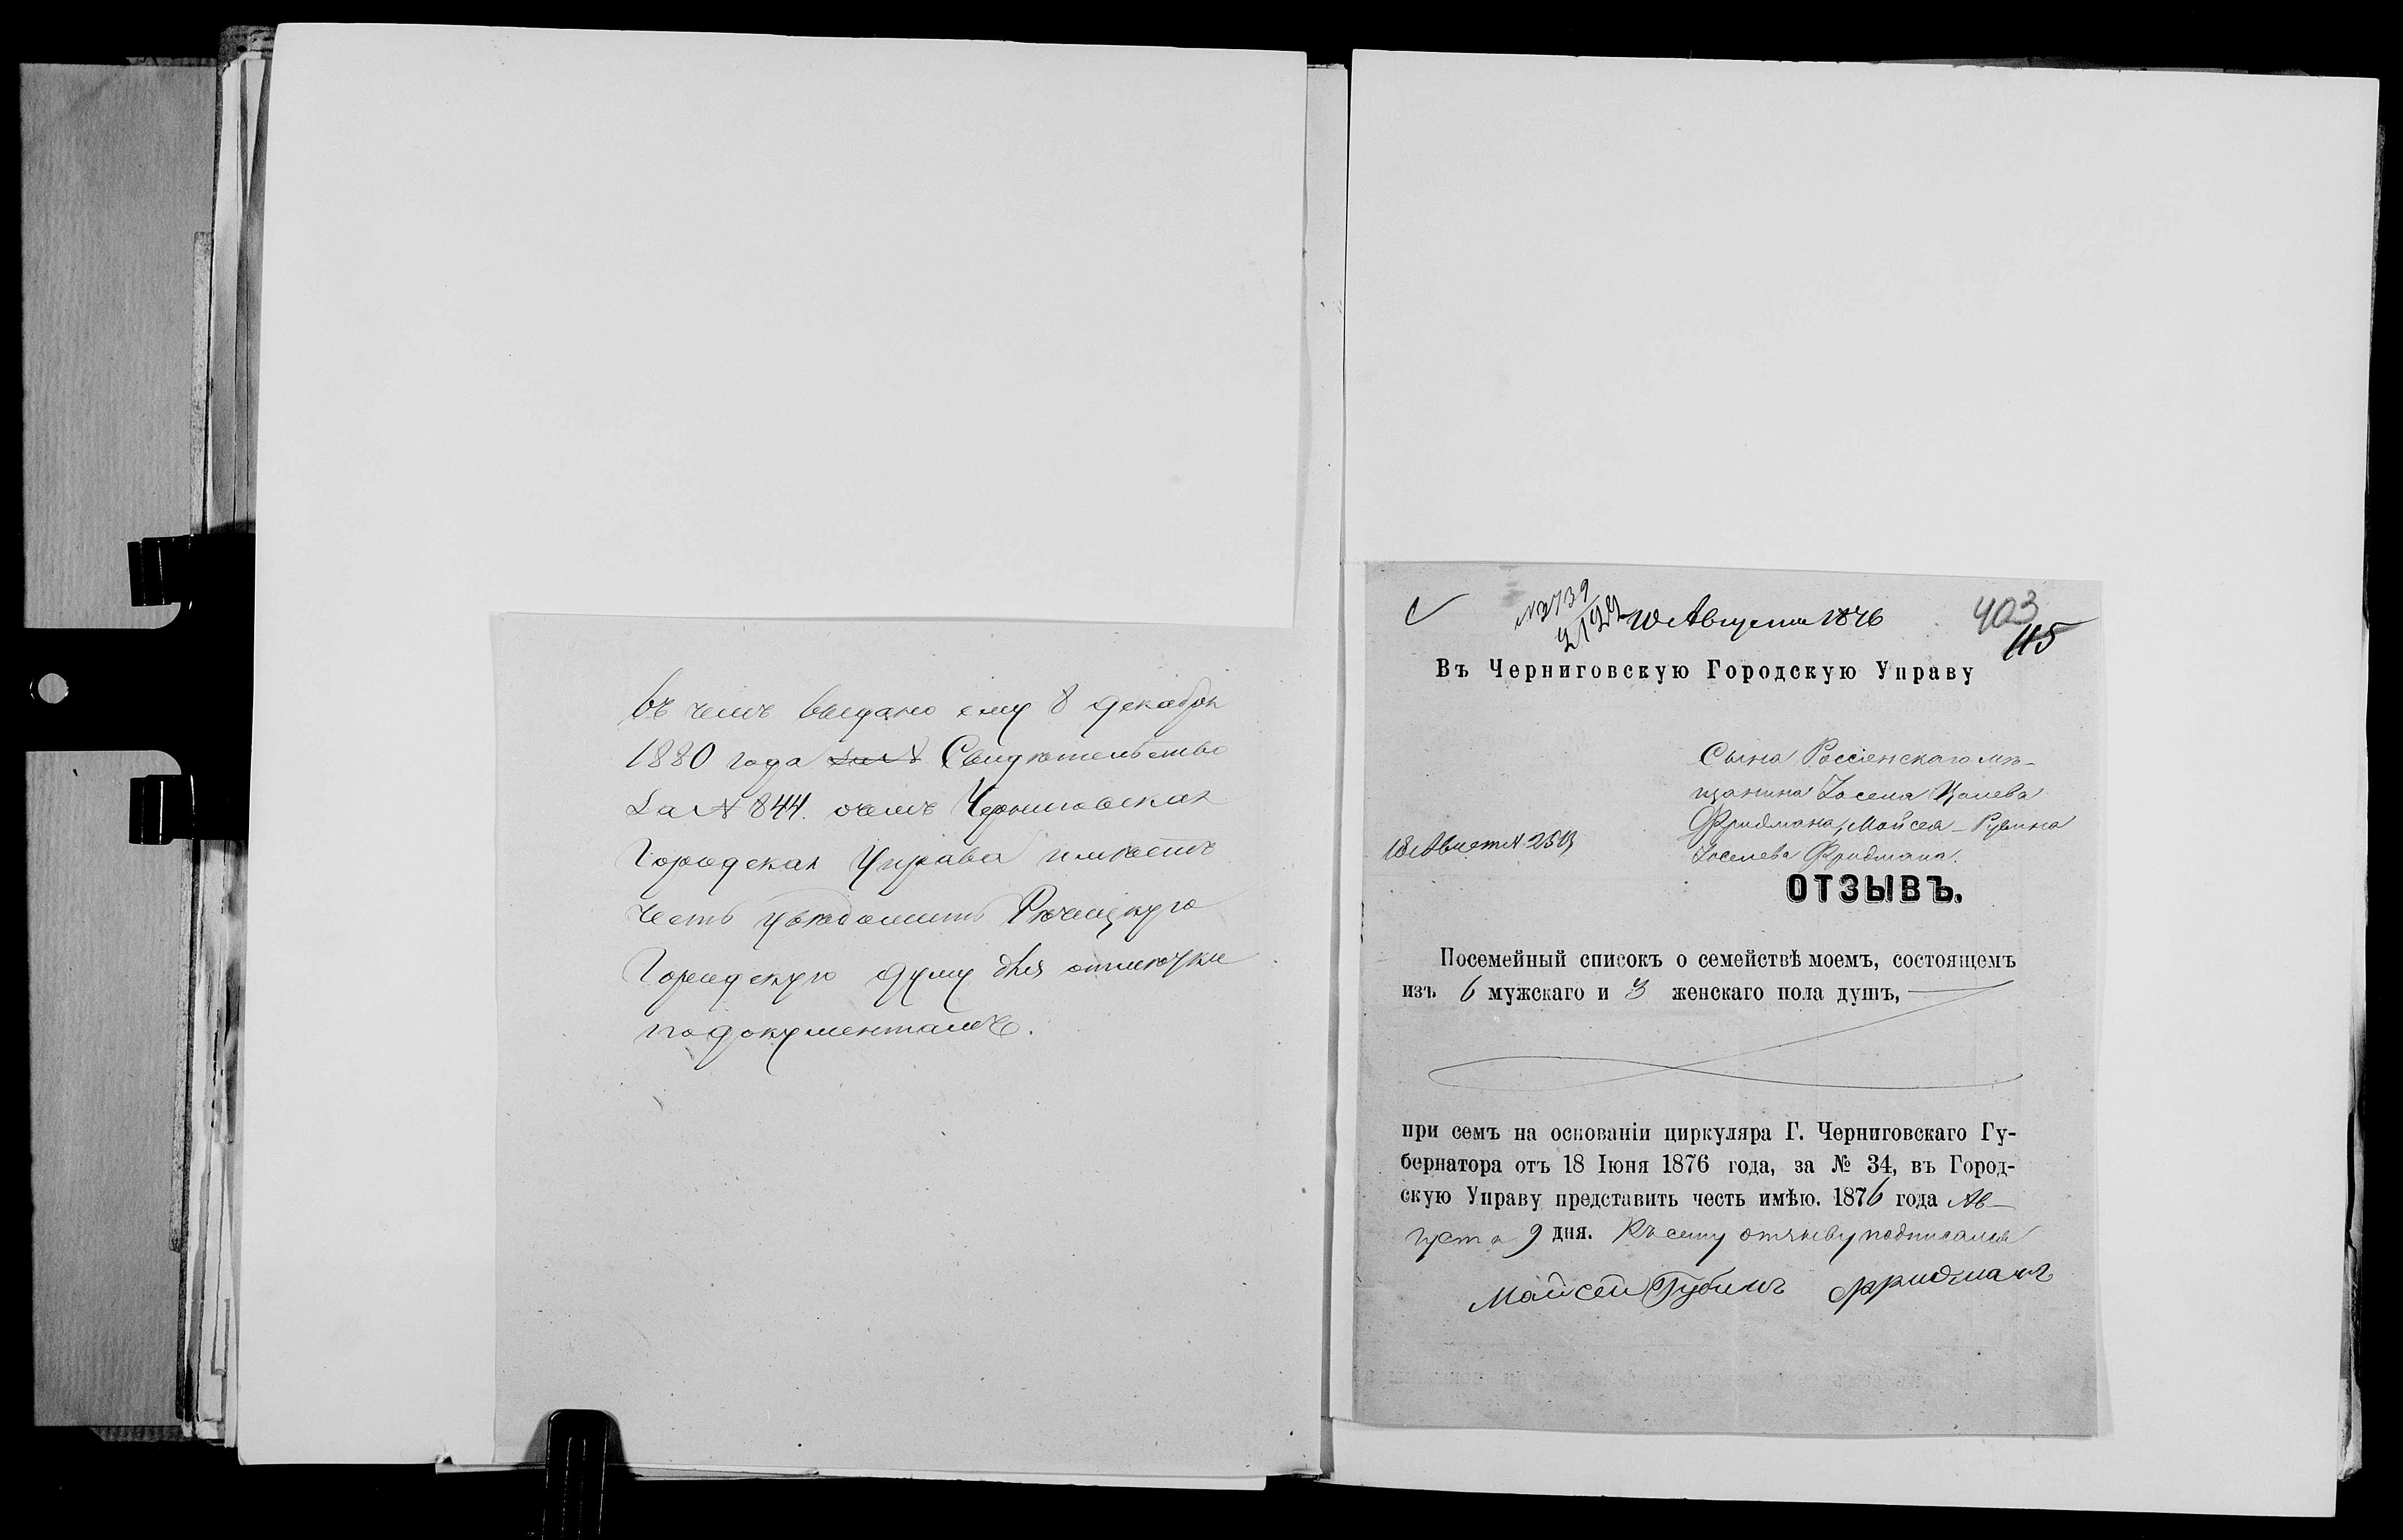 въ чемъ выдано ему 8 декабря
1880 года за № Свидетельство
за № 844. о чемъ Черниговская
Городская Управа имѣетъ
честь увѣдомить Рѣчицкую
Городскую думу для отмѣтки
по документамъ.
№ 2739
10 Августа 1876
403
115
Въ Черниговскую Городскую Управу
Сына Россіенскаго мѣ-
щанина Іосела
Фридмана, Мойсея-Рувина
Іоселева Фридмана.
18 Августа № 2503
ОТЗЫВЪ.
Посемейный списокъ о семействѣ моемъ, состоящемъ
изъ 6 мужскаго и 3 женскаго пола душъ,
при семъ на основаніи циркуляра Г. Черниговскаго Гу-
бернатора отъ 18 Іюня 1876 года, за № 34, въ Город-
скую Управу представить честь имѣю. 1876 года Ав-
густа 9 дня. Къ сему отзыву подписался
Мойсей Рубинъ Фридманъ